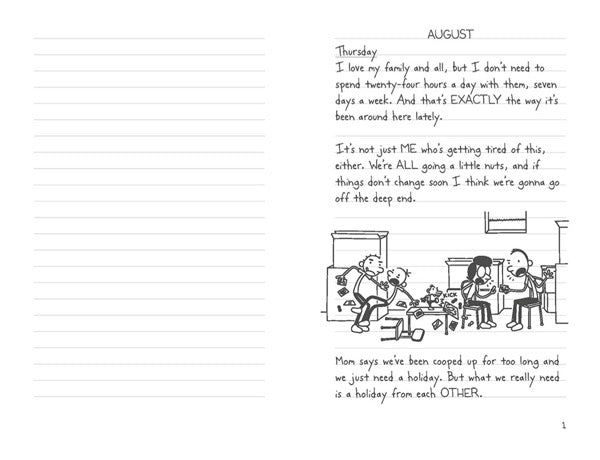 AUGUST
Thursday
I love my family and all, but I don't need to
spend twenty-four hours a day with them, seven
days a week. And that's EXACTLY the way it's
been around here lately.
It's not just ME who's getting tired of this,
either. We're ALL going a little nuts, and if
things don't change soon I think we're gonna go
off the deep end.
KICK
Mom says we've been cooped up for too long and
we just need a holiday. But what we really need
is a holiday from each OTHER.
1